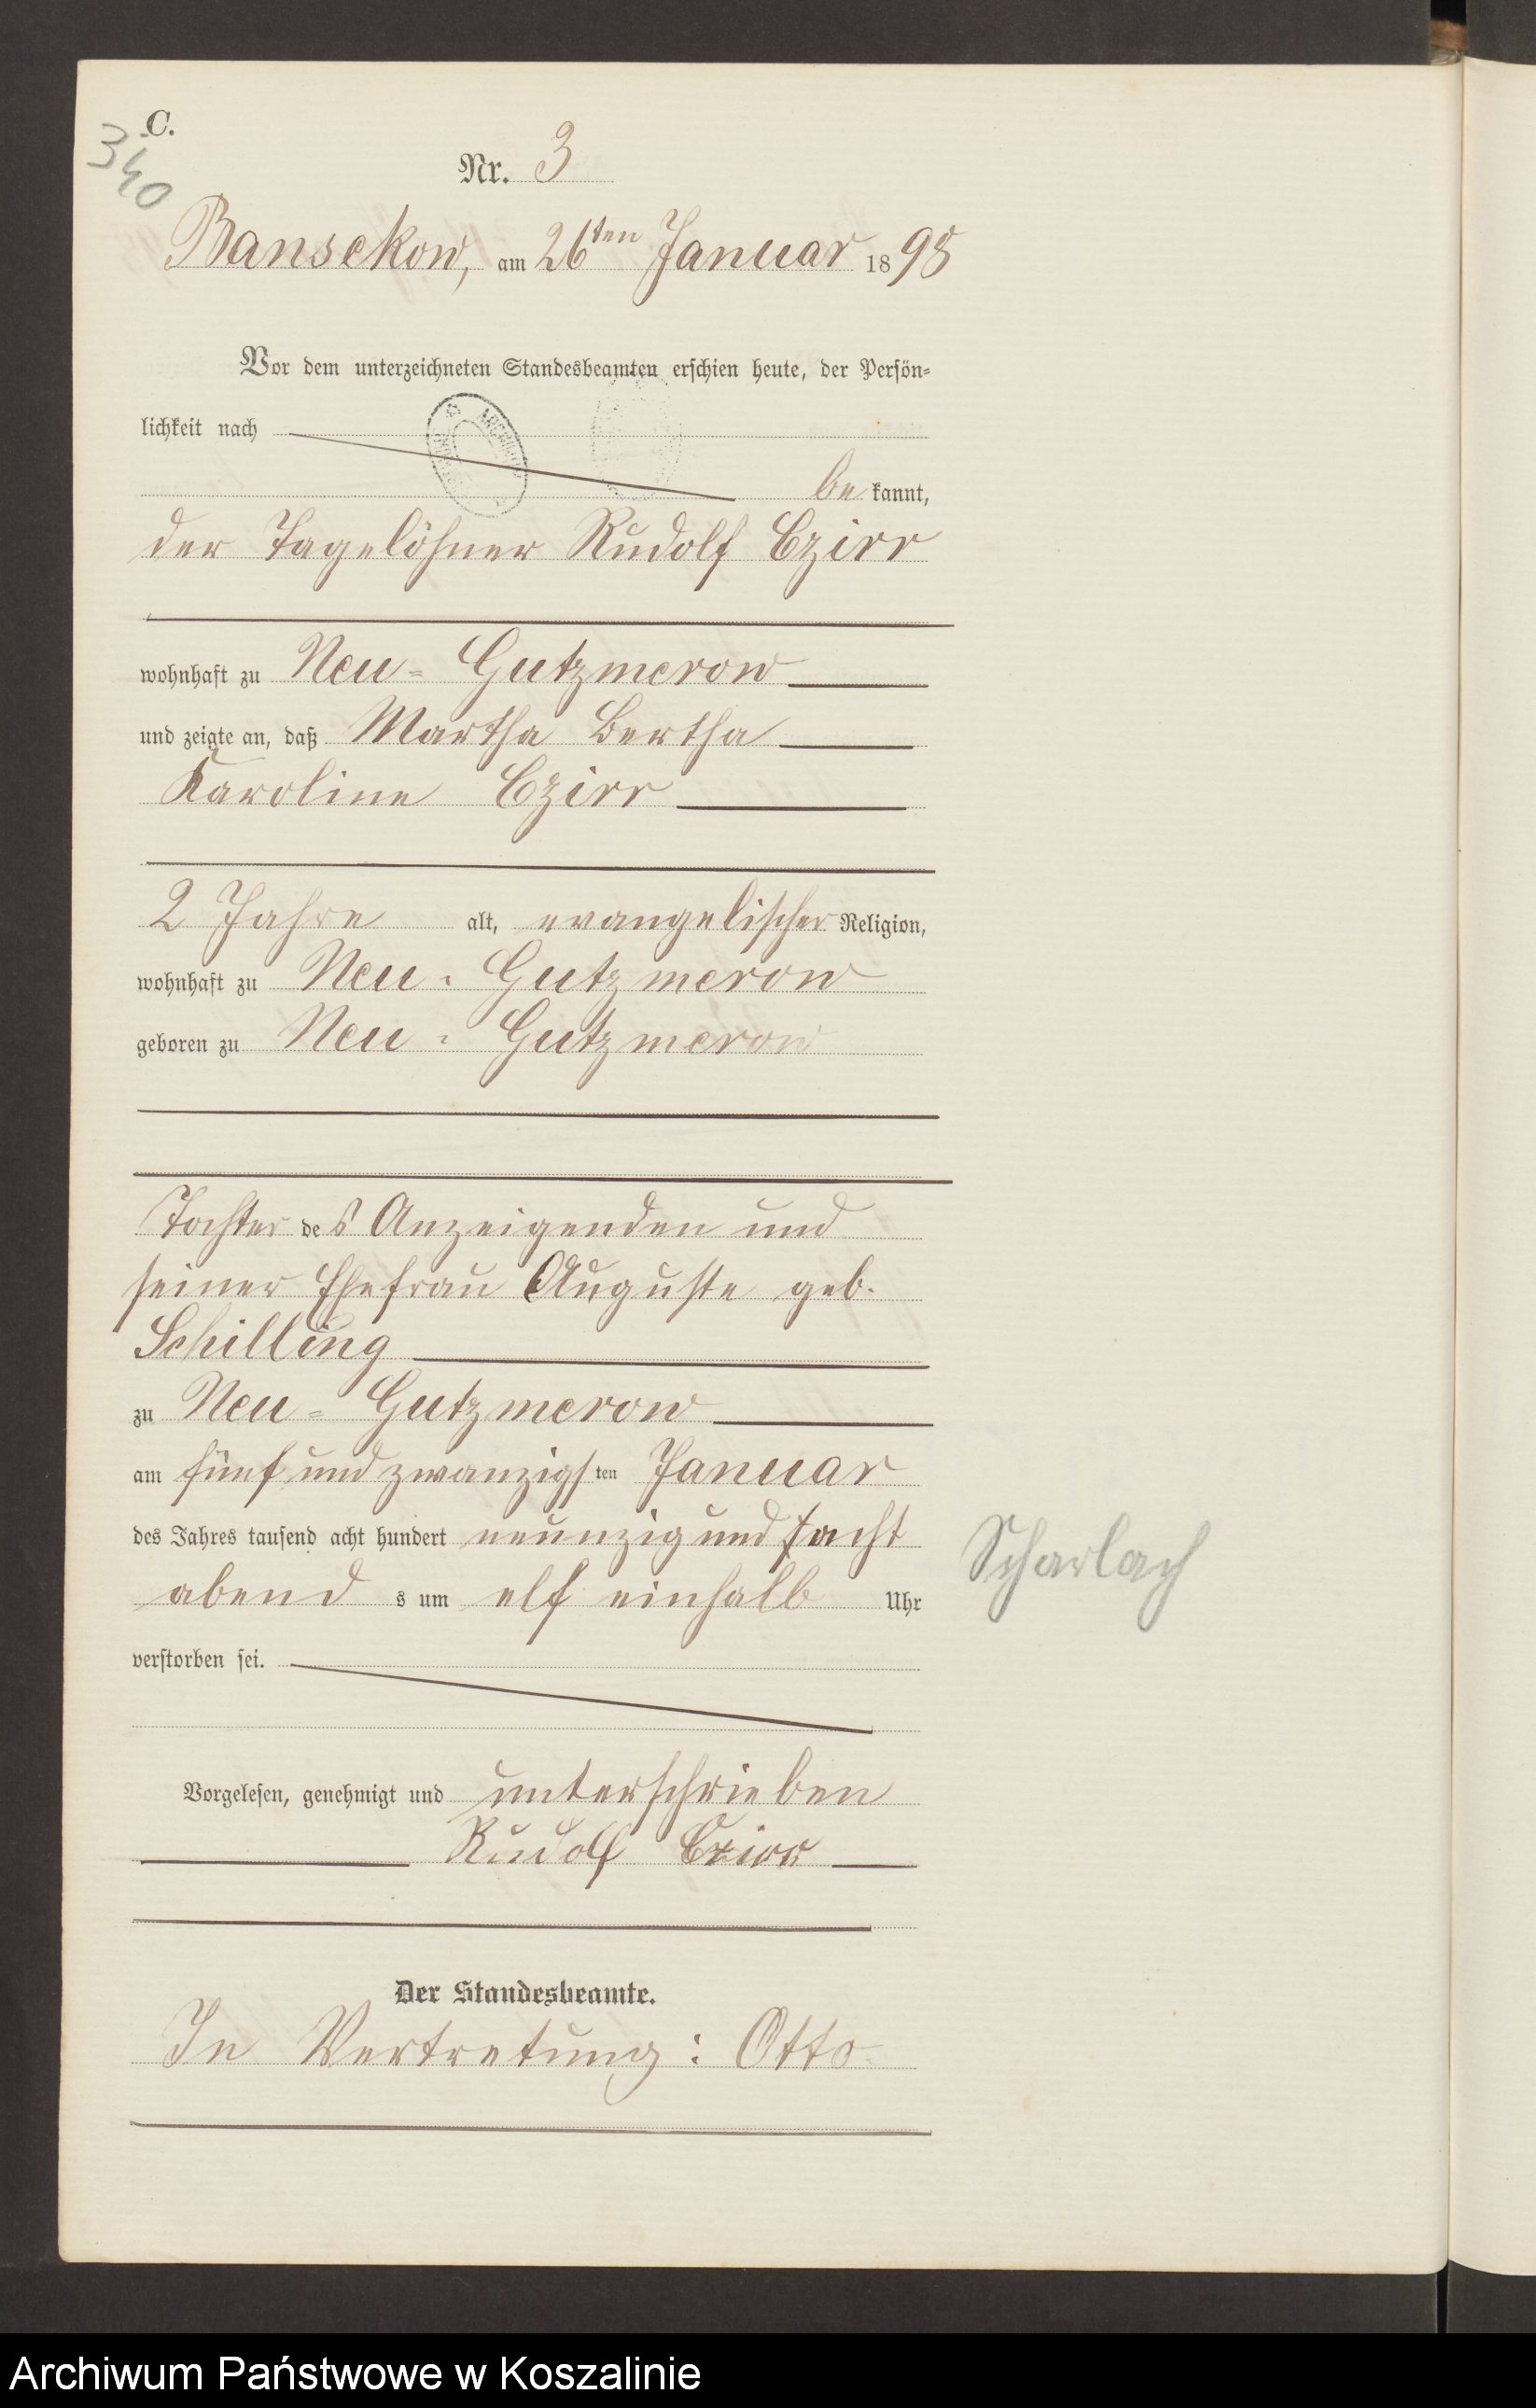 C.
340
Nr. 3
Bansekow, am 26ten Januar 1898
Vor dem unterzeichneten Standesbeamten erschien heute, der Persön-
lichkeit nach
be kannt,
der Tagelöhner Rudolf Czirr
wohnhaft zu Neu-Gutzmerow
und zeigte an, daß Martha Bertha
Karoline Czirr
2 Jahre alt, evangelischer Religion,
wohnhaft zu Neu-Gutzmerow
geboren zu Neu-Gutzmerow
Tochter des Anzeigenden und
seiner Ehefrau Auguste geb.
Schilling
zu Neu-Gutzmerow
am fünf und zwanzigsten Januar
des Jahres tausend acht hundert neunzig und acht
abend s um elf einhalb Uhr
verstorben sei.
Scharlach
Vorgelesen, genehmigt und unterschrieben
Rudolf Czirr
Der Standesbeamte.
In Vertretung: Otto.
Archiwum Państwowe w Koszalinie